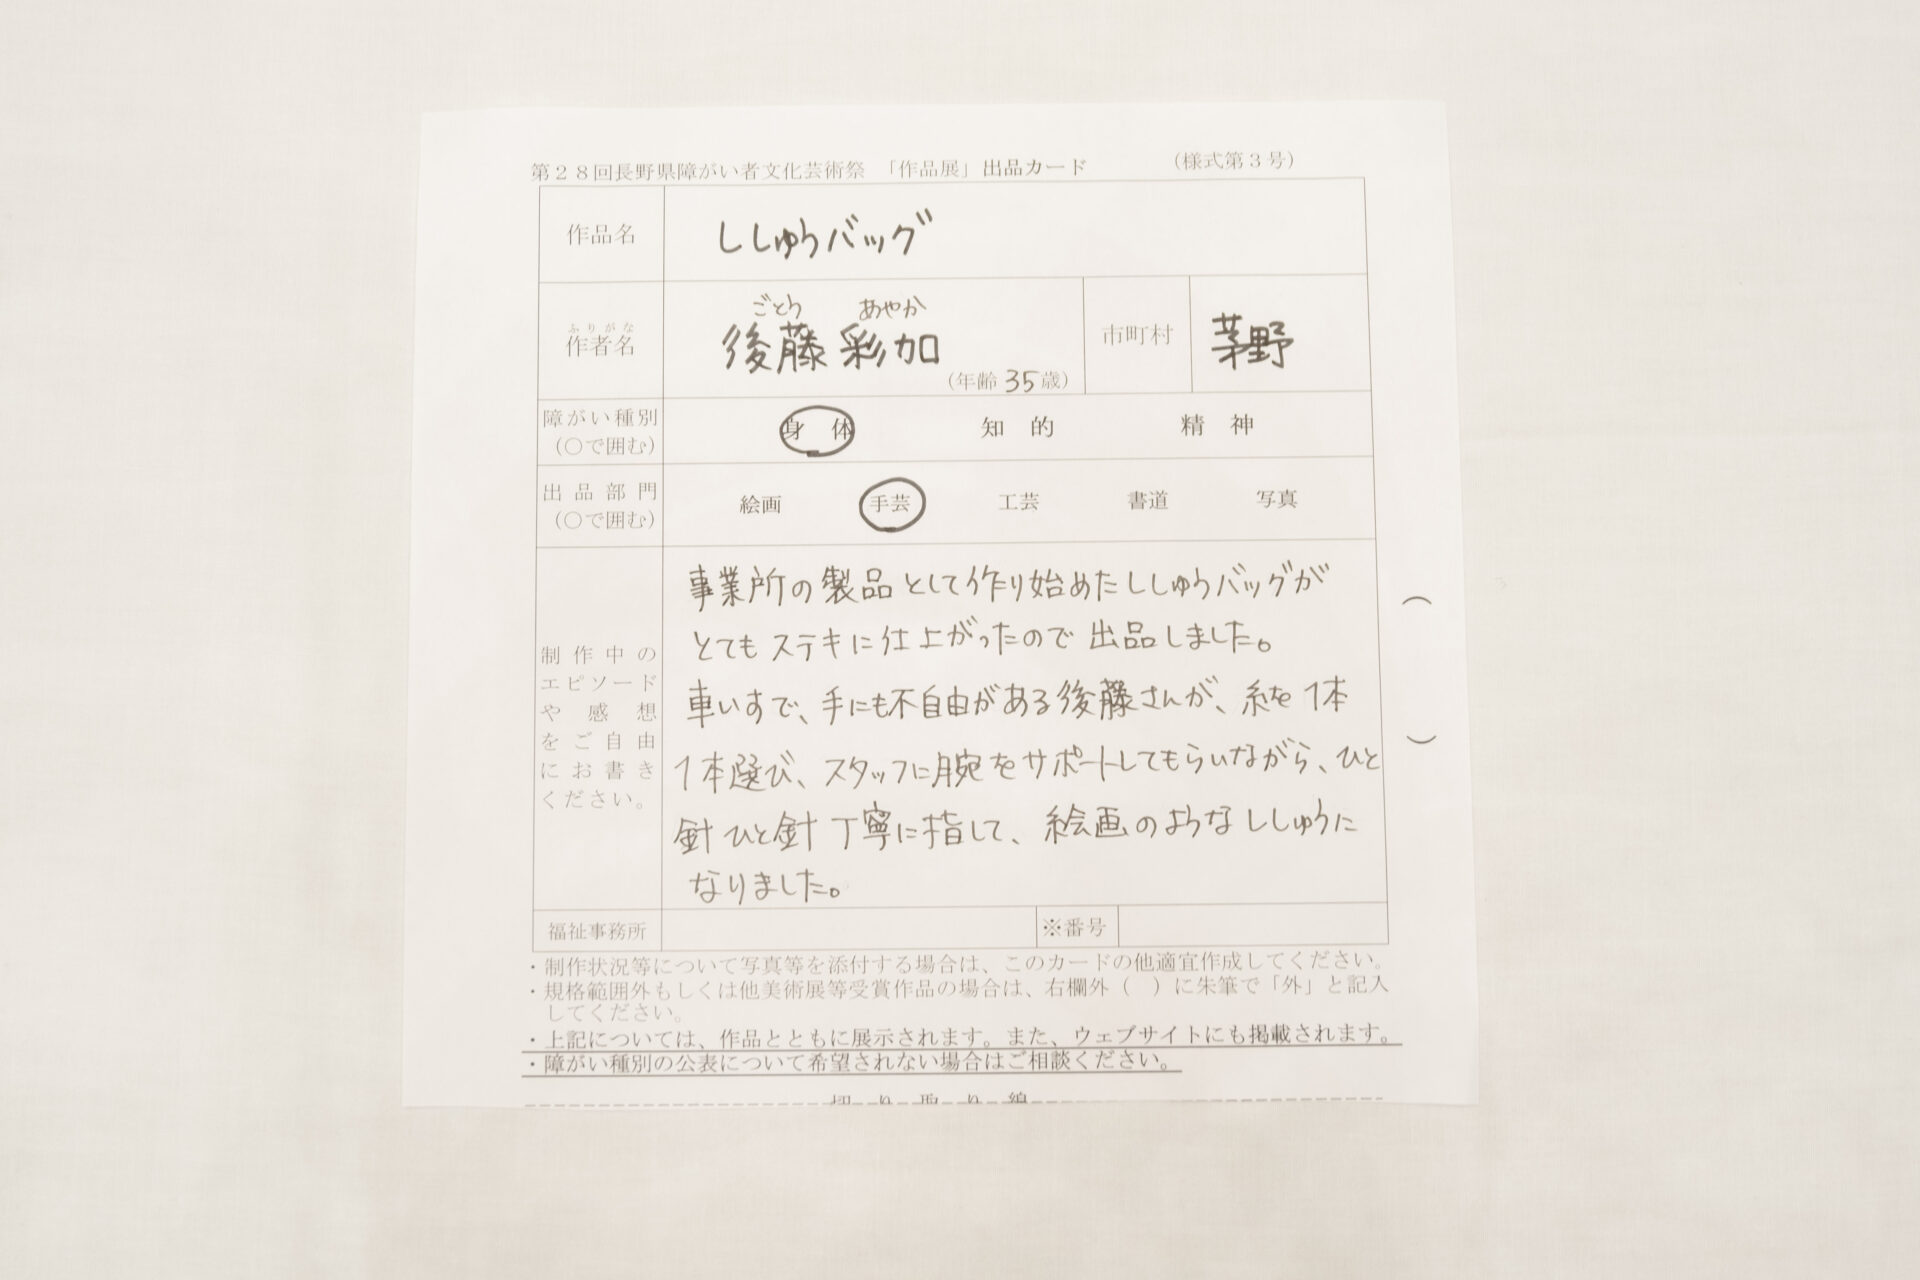 第28回長野県障がい者文化芸術祭 「作品展」出品カード (様式第3号)
作品名 ししゅうバッグ
ごとう あやか
ふりがな
作者名 後藤 彩加 (年齢 35歳) 市町村 茅野
障がい種別 (○で囲む) 身体 知的 精神
出品部門 (○で囲む) 絵画 手芸 工芸 書道 写真
制作中の
エピソード
や感想
をご自由
にお書き
ください。
事業所の製品として作り始めたししゅうバッグが
とてもステキに仕上がったので出品しました。
車いすで、手にも不自由がある後藤さんが、糸を1本
1本選び、スタッフに腕をサポートしてもらいながら、ひと
針ひと針丁寧に指して、絵画のようなししゅうに
なりました。
( )
福祉事務所 ※番号
・制作状況等について写真等を添付する場合は、このカードの他適宜作成してください。
・規格範囲外もしくは他美術展等受賞作品の場合は、右欄外( )に朱筆で「外」と記入
してください。
・上記については、作品とともに展示されます。また、ウェブサイトにも掲載されます。
・障がい種別の公表について希望されない場合はご相談ください。
切り取り線